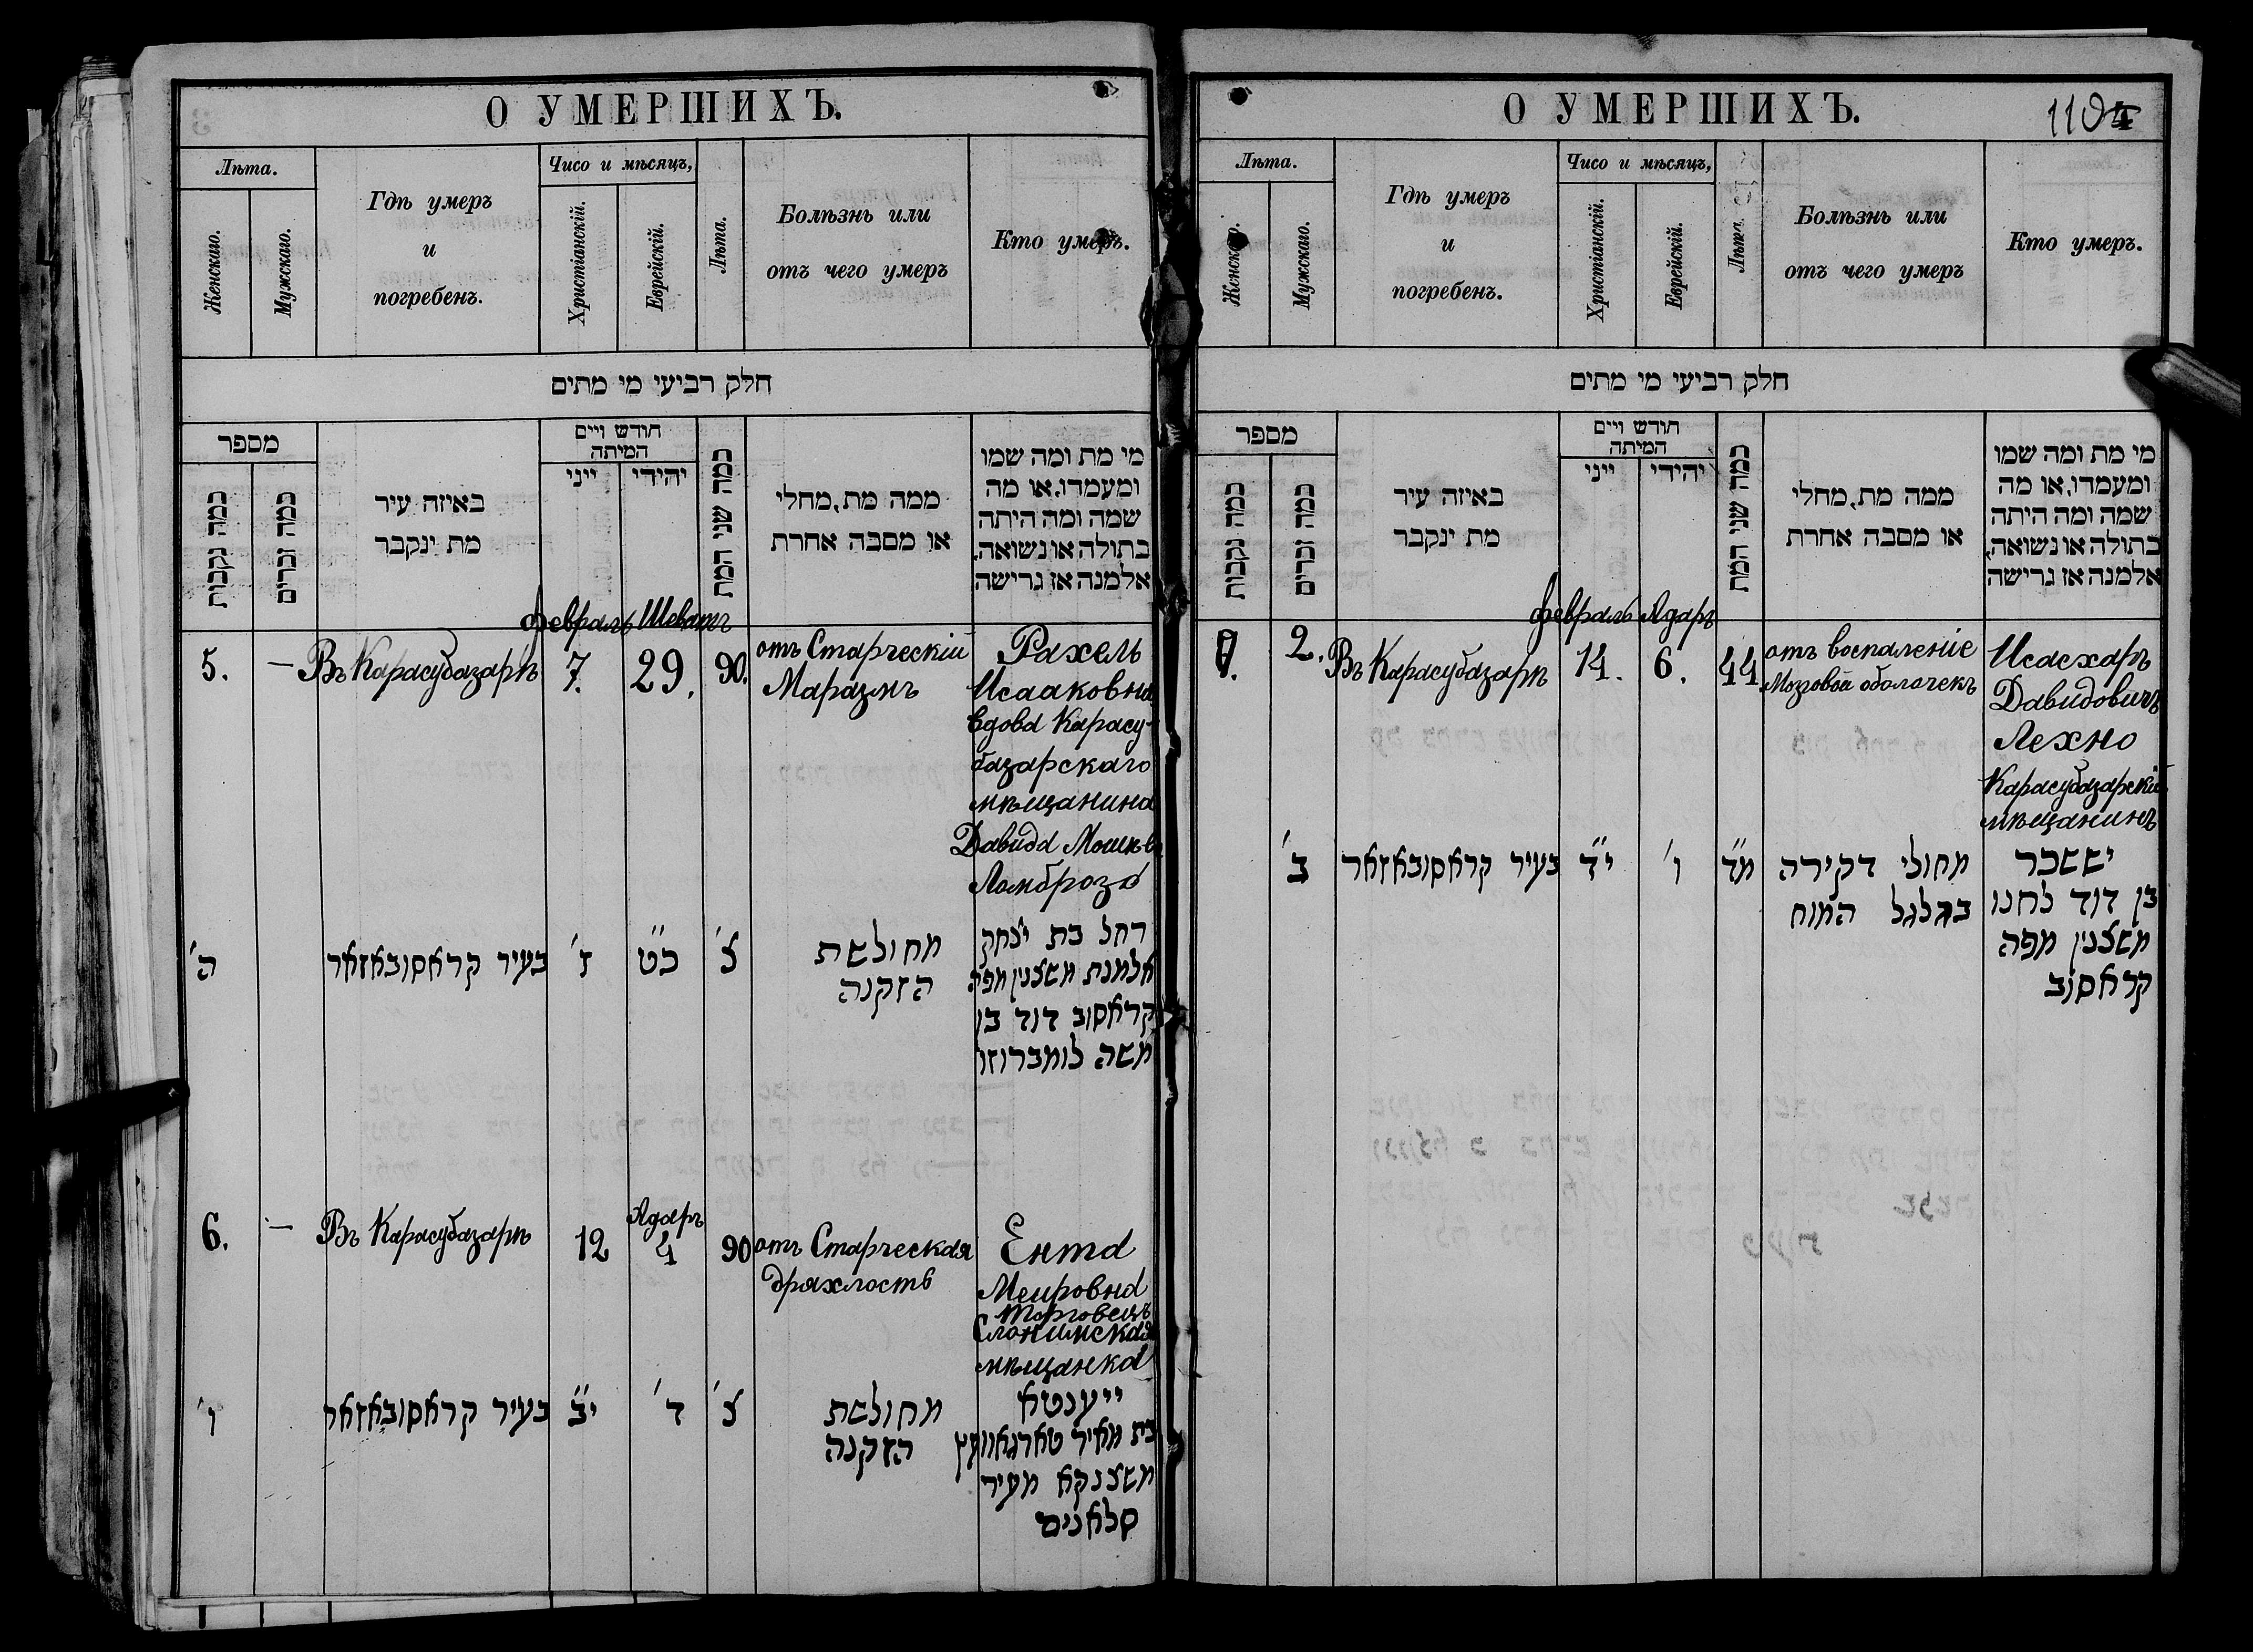 О УМЕРШИХЪ.
Лѣта.
Женскаго.
Мужскаго.
Гдѣ умеръ
и
погребенъ.
Чисо и мѣсяцъ,
Христіанскій.
Еврейскій.
Лѣта.
Болѣзнь или
отъ чего умеръ
Кто умеръ.
חלק רביעי מי מתים
מספר
כמה נקבות
כמה זכרים
באיזה עיר
מת ינקבר
חודש ויים
המיתה
ייני
יהידי
כמה שני המת
ממה מת, מחלי
או מסבה אחרת
מי מת ומה שמו
ומעמדו, או מה
שמה ומה היתה
בתולה או נשואה,
אלמנה אז גרישה
февраль Шеватъ
5. — Въ Карасубазарѣ 7. 29. 90.
отъ Старческій
Маразмъ
Рахель
Исааковна
вдова Карасу-
базарскаго
мѣщанина
Давида Мошкѣ
Ломброзо
ה'
בעיר קראסובאזאר
ז'
כ"ט
צ'
מחולשת
הזקנה
רחל בת יצחק
אלמנת משצנין מפה
קראסוב דוד בן
משה לומברוזו
Адаръ
6. — Въ Карасубазарѣ 12 4 90
отъ Старческая
дряхлость
Ента
Меировна
Торговецъ
Слонимская
мѣщанка
ו'
בעיר קראסובאזאר
י"ב
ד'
צ'
מחולשת
הזקנה
ייענטא
בת מאיר טארגאוועץ
משצנקא מעיר
סלאנים
О УМЕРШИХЪ.
110
4
Лѣта.
Женскаго.
Мужскаго.
Гдѣ умеръ
и
погребенъ.
Чисо и мѣсяцъ,
Христіанскій.
Еврейскій.
Лѣта.
Болѣзнь или
отъ чего умеръ
Кто умеръ.
חלק רביעי מי מתים
מספר
כמה נקבות
כמה זכרים
באיזה עיר
מת ינקבר
חודש ויים
המיתה
ייני
יהידי
כמה שני המת
ממה מת, מחלי
או מסבה אחרת
מי מת ומה שמו
ומעמדו, או מה
שמה ומה היתה
בתולה או נשואה,
אלמנה אז גרישה
февраль Адаръ
2. Въ Карасубазарѣ 14. 6. 44
отъ воспаленіе
Мозговой оболочекъ
Исасхаръ
Давидовичъ
Лехно
Карасубазарскій
мѣщанинъ
ב'
בעיר קראסובאזאר
י"ד
ו'
מ"ד
מחולי דקירה
בגלגל המוח
יששכר
בן דוד לחנו
משצנין מפה
קראסוב